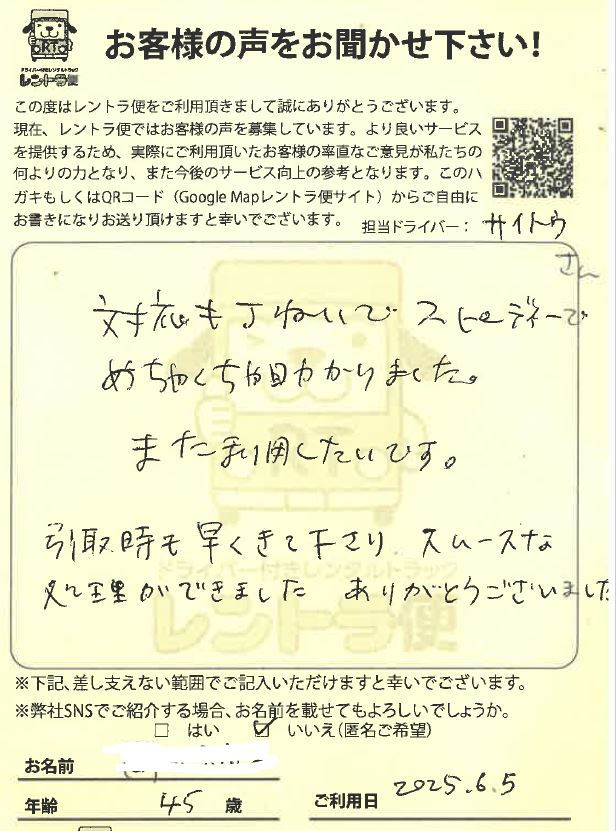 RT
ドライバー付きレンタルトラック
レントラ便
お客様の声をお聞かせ下さい!
この度はレントラ便をご利用頂きまして誠にありがとうございます。
現在、レントラ便ではお客様の声を募集しています。より良いサービス
を提供するため、実際にご利用頂いたお客様の率直なご意見が私たちの
何よりの力となり、また今後のサービス向上の参考となります。このハ
ガキもしくはQRコード（Google Mapレントラ便サイト）からご自由に
お書きになりお送り頂けますと幸いでございます。
担当ドライバー： サイトウ
さん
対応も丁ねいで スピーディーで
めちゃくちゃ助かりました。
また利用したいです。
引取時も早くきて下さり、スムーズな
処理ができました ありがとうございました
RT
ドライバー付きレンタルトラック
レントラ便
※下記、差し支えない範囲でご記入いただけますと幸いでございます。
※弊社SNSでご紹介する場合、お名前を載せてもよろしいでしょうか。
□ はい ☑ いいえ(匿名ご希望)
お名前
年齢 45 歳 ご利用日 2025.6.5